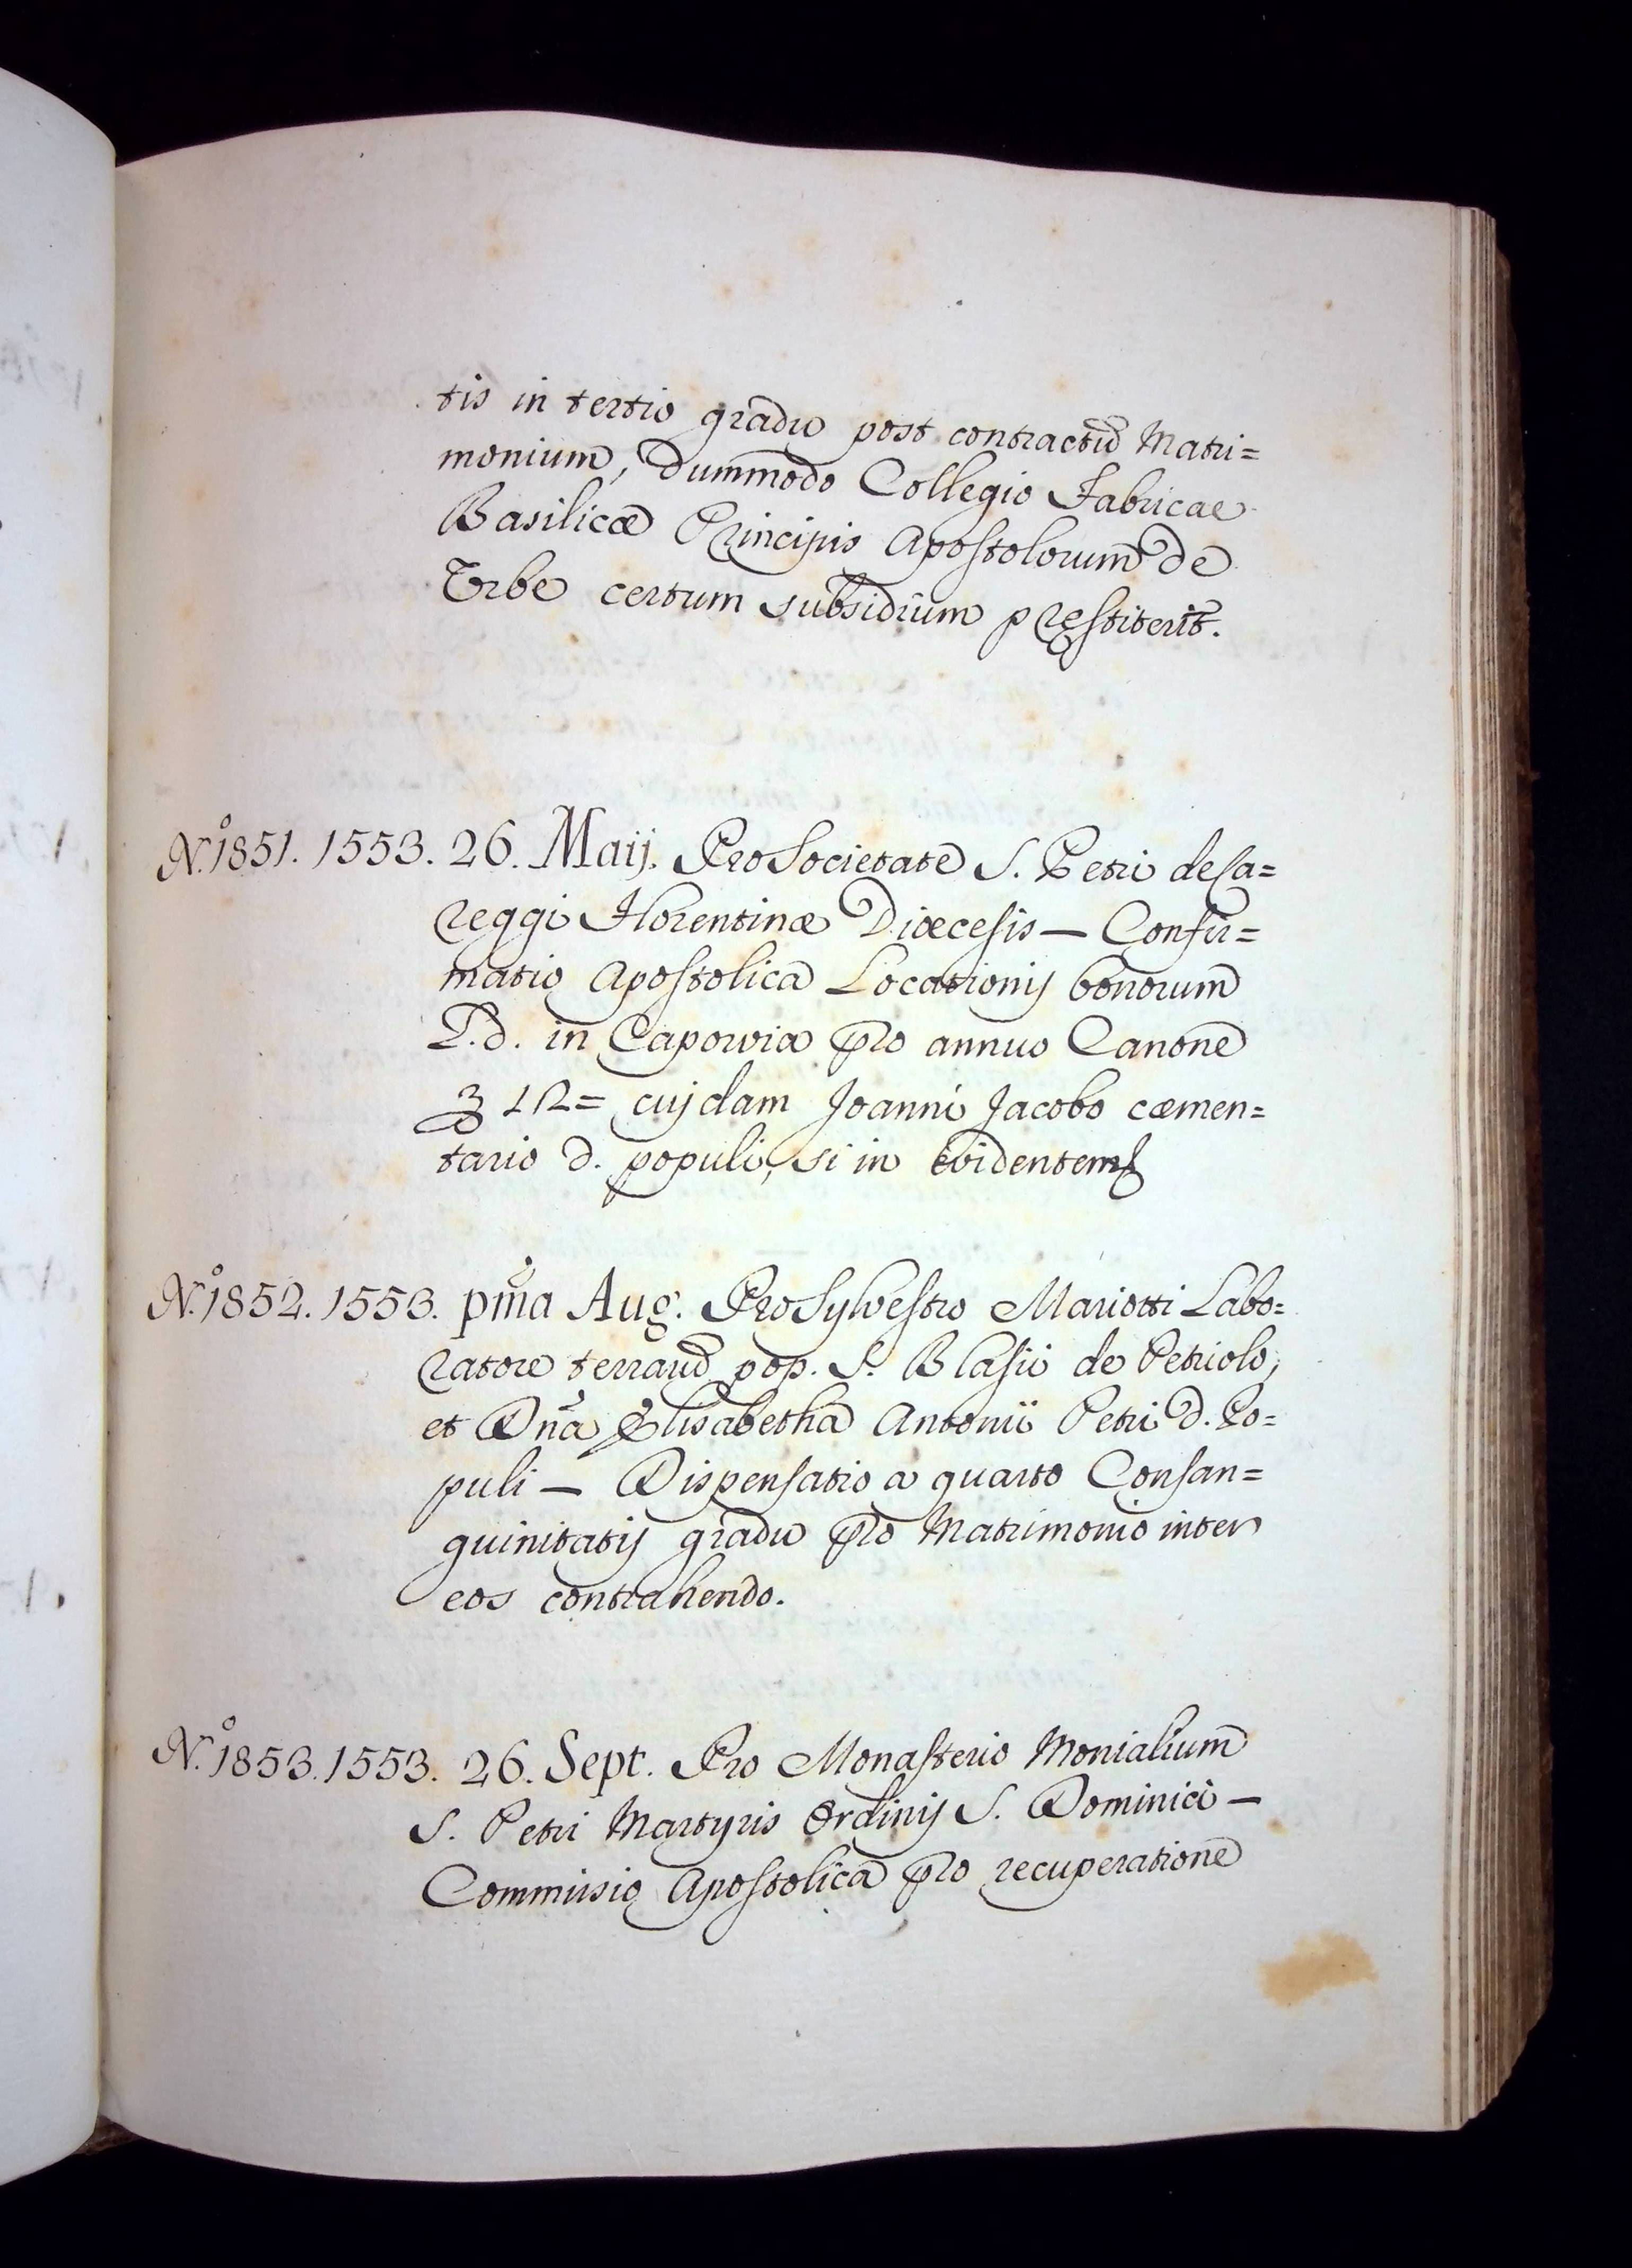 tis in tertio gradu post contractū Matri=
monium, Dummodo Collegio Fabricae
Basilicæ Principis Apostolorum de
Urbe certum subsidium pręstiterit.
N.º 1851. 1553. 26. Maij. Pro Societate S. Petri de Ca=
reggi Florentinæ Diœcesis — Confir=
matio Apostolica Locationis bonorum
P.d. in Caporvia pro annuo Canone
12= cujdam Joanni Jacobo cæmen=
tario d. populi, si in evidentem
N.º 1852. 1553. pm̃a Aug. Pro Sylvestro Mariotti Labo=
ratore terrarū pop. S. Blasii de Petriolo,
et Dñа Elisabetha Antonii Petri d. Po=
puli — Dispensatio a quarto Consan=
guinitatis gradu pro Matrimonio inter
eos contrahendo.
N.º 1853. 1553. 26. Sept. Pro Monasterio Monialium
S. Petri Martyris Ordinis S. Dominici —
Commisio Apostolica pro recuperatione